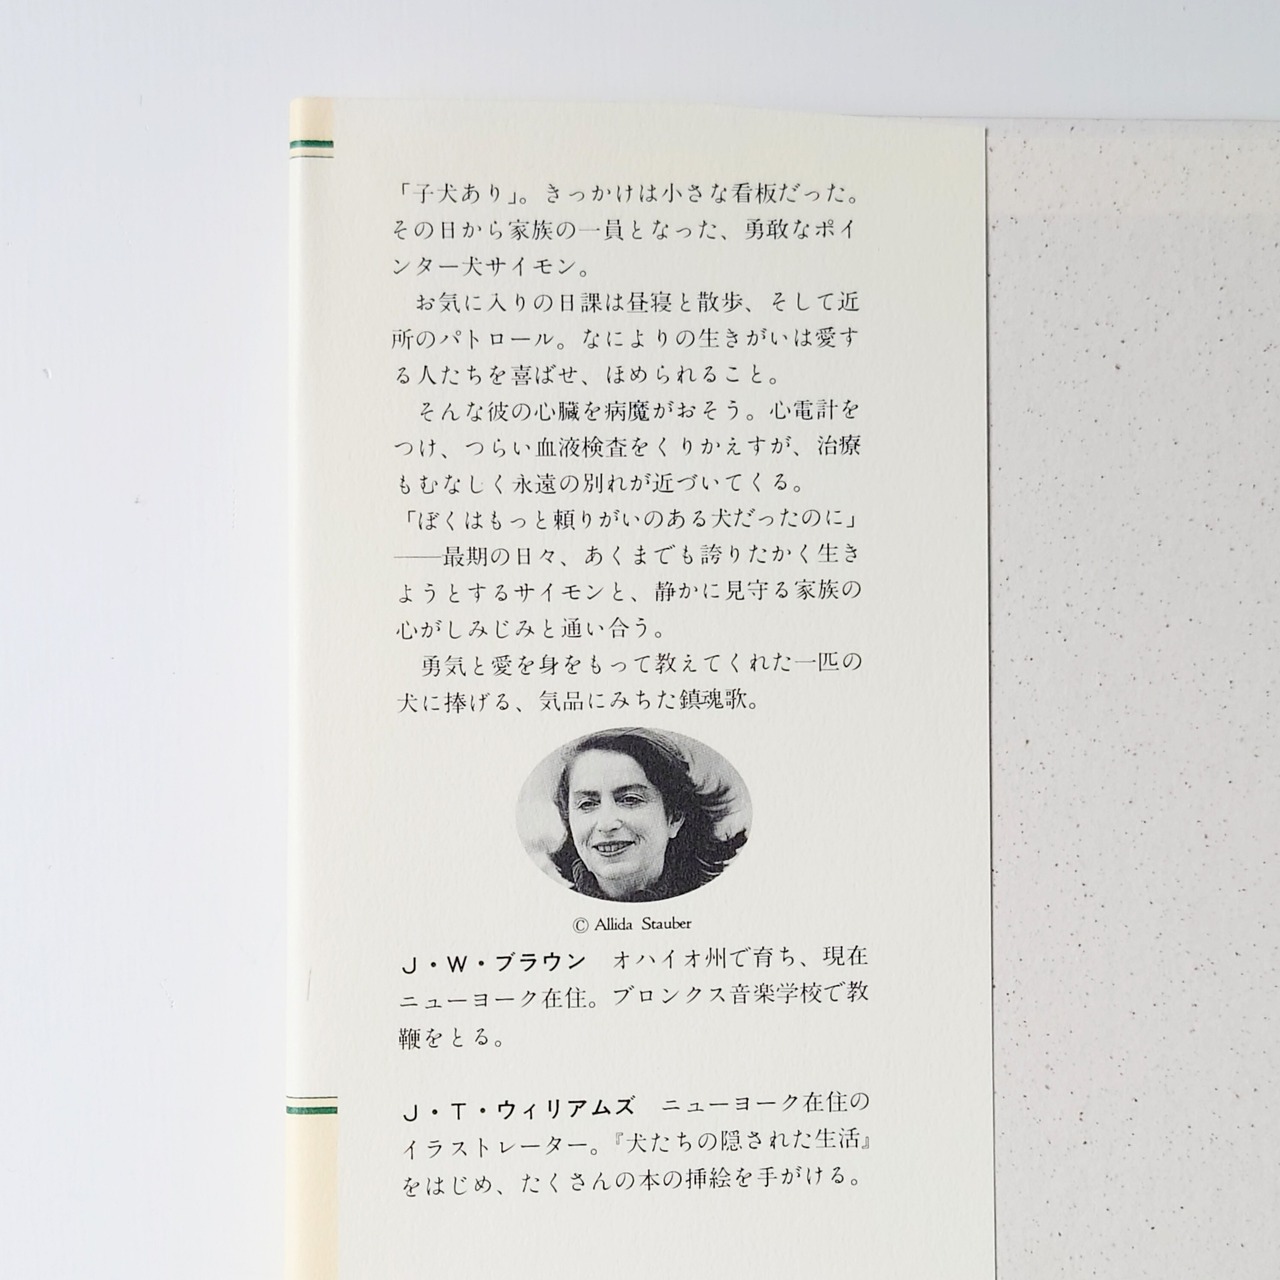 「子犬あり」。きっかけは小さな看板だった。
その日から家族の一員となった、勇敢なポイ
ンター犬サイモン。
お気に入りの日課は昼寝と散歩、そして近
所のパトロール。なによりの生きがいは愛す
る人たちを喜ばせ、ほめられること。
そんな彼の心臓を病魔がおそう。心電計を
つけ、つらい血液検査をくりかえすが、治療
もむなしく永遠の別れが近づいてくる。
「ぼくはもっと頼りがいのある犬だったのに」
──最期の日々、あくまでも誇りたかく生き
ようとするサイモンと、静かに見守る家族の
心がしみじみと通い合う。
勇気と愛を身をもって教えてくれた一匹の
犬に捧げる、気品にみちた鎮魂歌。
© Allida Stauber
J・W・ブラウン　オハイオ州で育ち、現在
ニューヨーク在住。ブロンクス音楽学校で教
鞭をとる。
J・T・ウィリアムズ　ニューヨーク在住の
イラストレーター。『犬たちの隠された生活』
をはじめ、たくさんの本の挿絵を手がける。